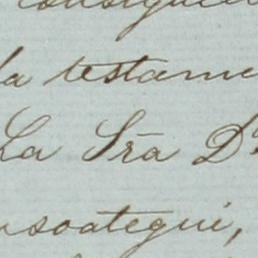 la testame
La Srā Dª
usoategui,